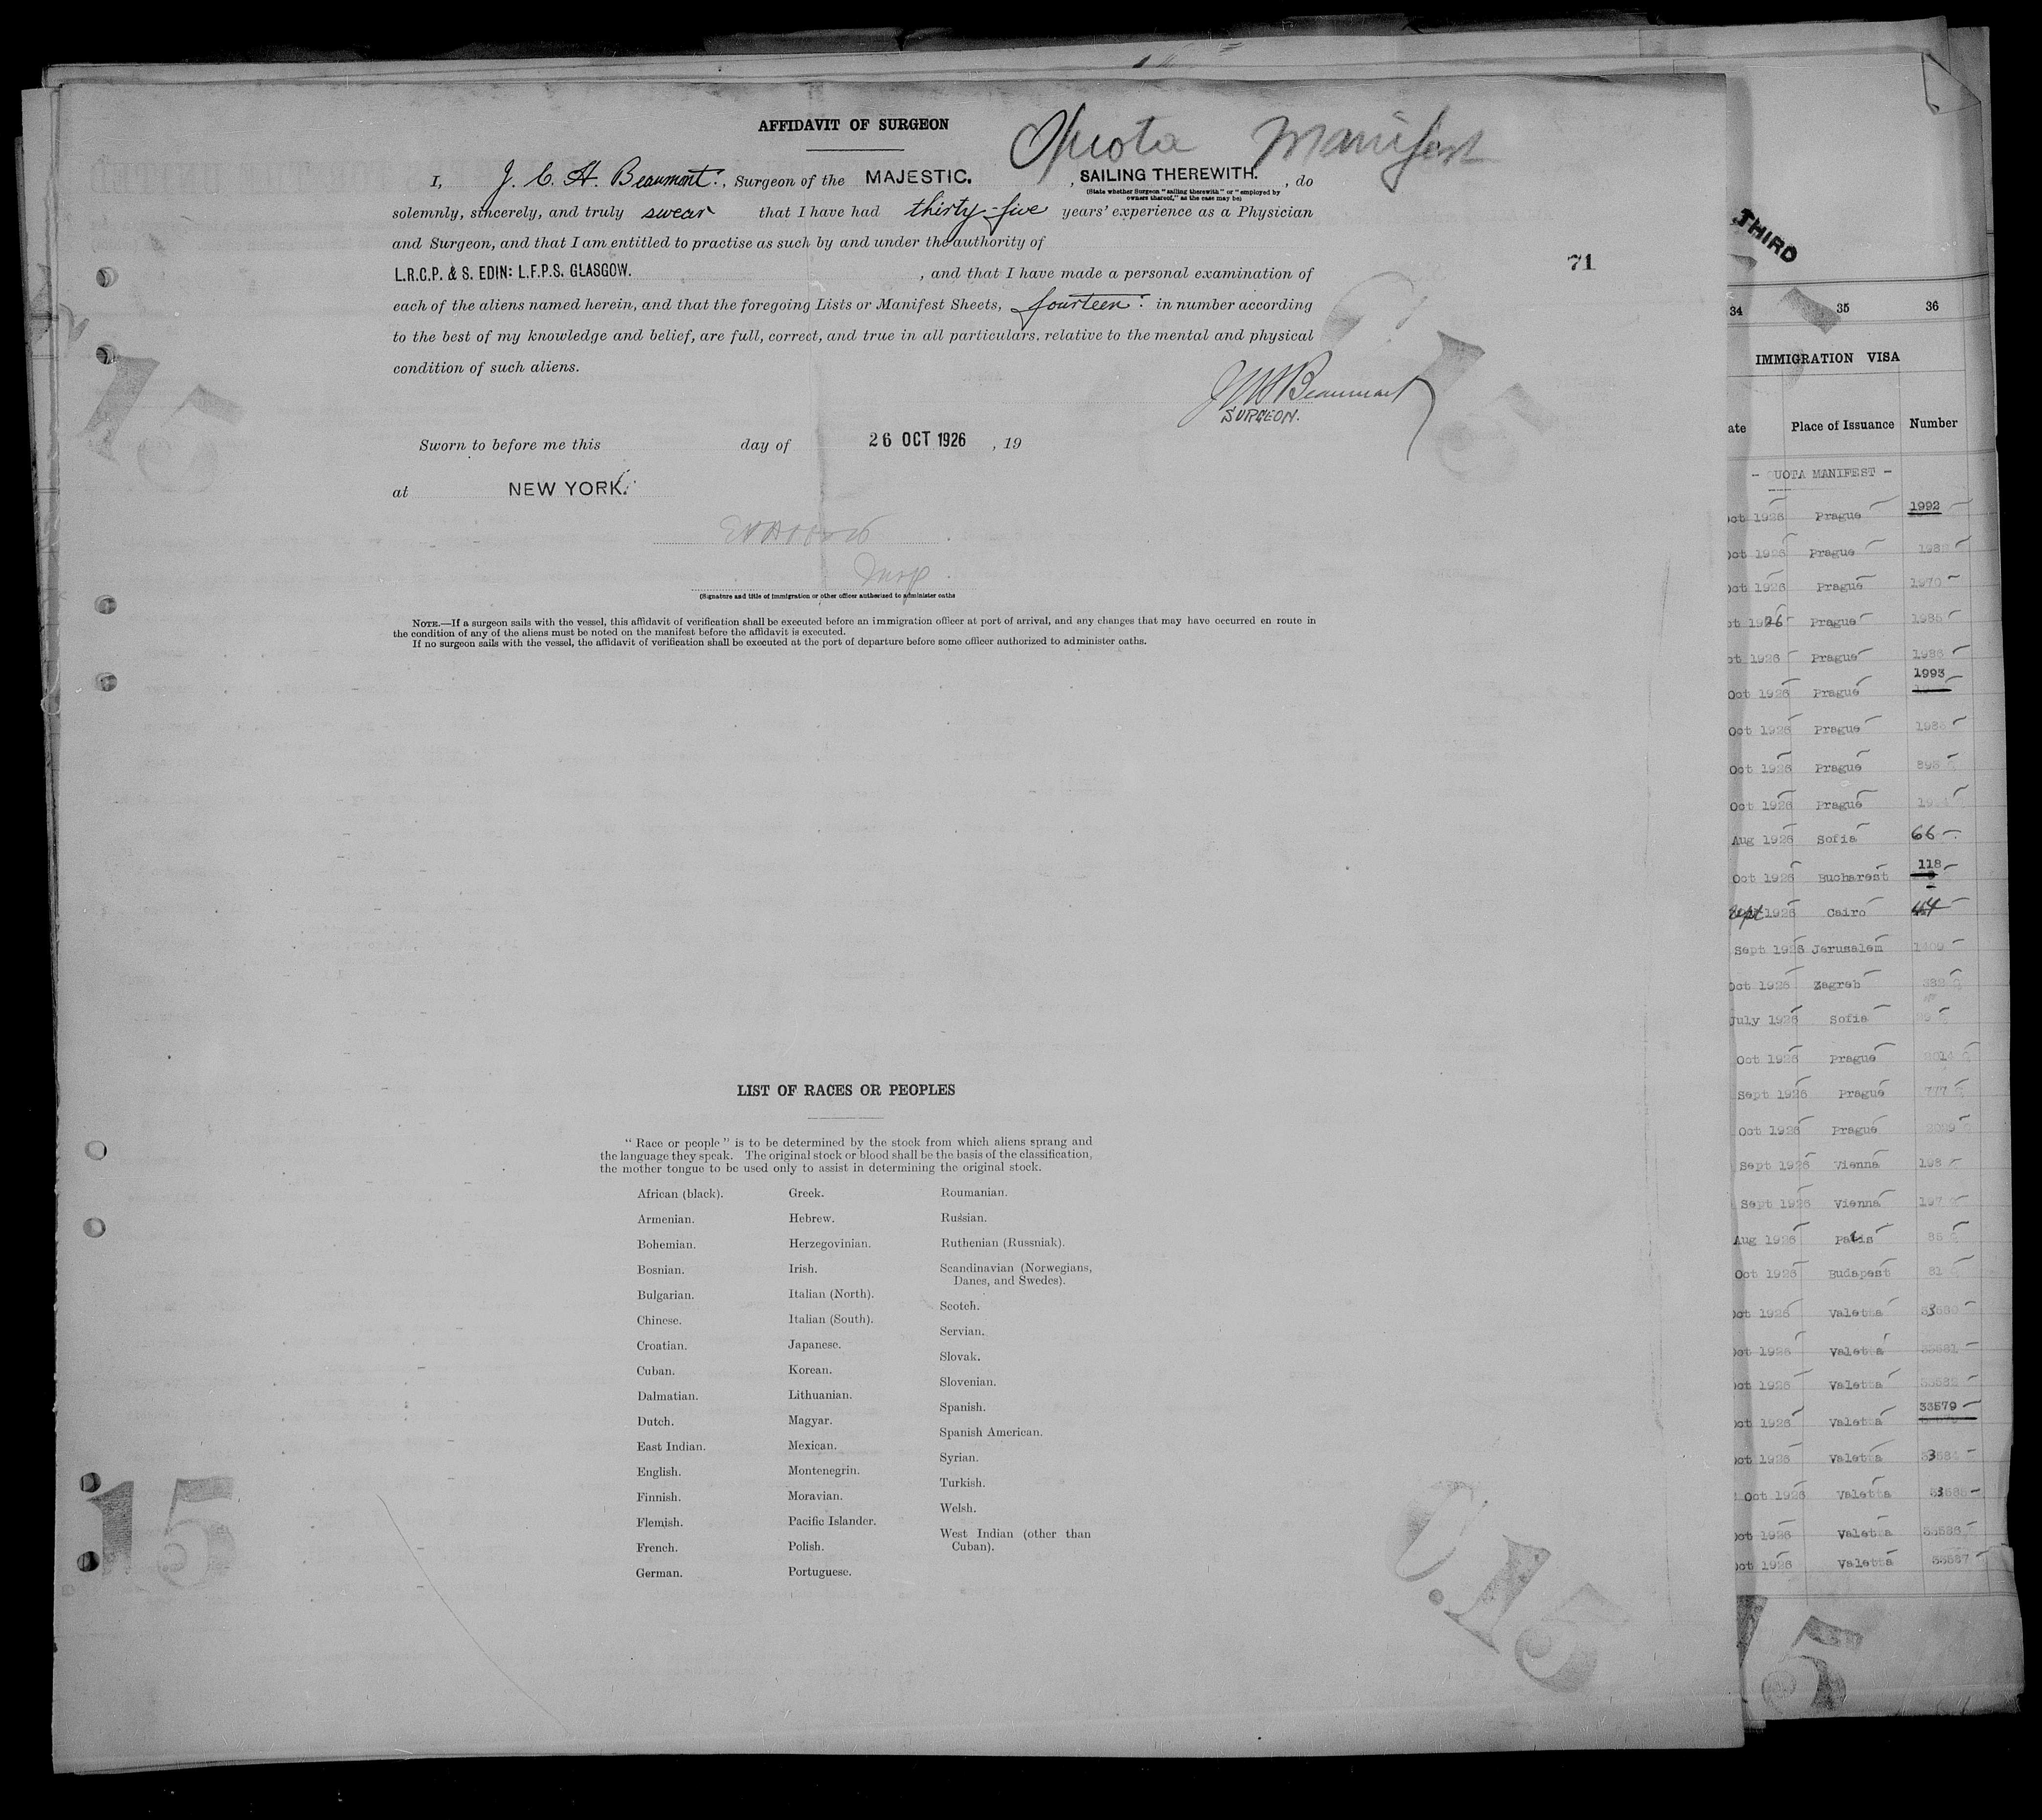 AFFIDAVIT OF SURGEON
Quota Manifest
I, J. C. H. Beaumont, Surgeon of the MAJESTIC. , SAILING THEREWITH. , do
(State whether Surgeon "sailing therewith" or "employed by
owners thereof," as the case may be)
solemnly, sincerely, and truly swear that I have had thirty-five years' experience as a Physician
and Surgeon, and that I am entitled to practise as such by and under the authority of
L.R.C.P. & S. EDIN: L.F.P.S. GLASGOW. , and that I have made a personal examination of
each of the aliens named herein, and that the foregoing Lists or Manifest Sheets, fourteen: in number according
to the best of my knowledge and belief, are full, correct, and true in all particulars, relative to the mental and physical
condition of such aliens.
J C H Beaumont
SURGEON.
Sworn to before me this day of 26 OCT 1926 , 19
at NEW YORK.
Insp.
(Signature and title of immigration or other officer authorized to administer oaths
NOTE.—If a surgeon sails with the vessel, this affidavit of verification shall be executed before an immigration officer at port of arrival, and any changes that may have occurred en route in
the condition of any of the aliens must be noted on the manifest before the affidavit is executed.
If no surgeon sails with the vessel, the affidavit of verification shall be executed at the port of departure before some officer authorized to administer oaths.
71
15
C.15
LIST OF RACES OR PEOPLES
"Race or people" is to be determined by the stock from which aliens sprang and
the language they speak. The original stock or blood shall be the basis of the classification,
the mother tongue to be used only to assist in determining the original stock.
African (black).
Armenian.
Bohemian.
Bosnian.
Bulgarian.
Chinese.
Croatian.
Cuban.
Dalmatian.
Dutch.
East Indian.
English.
Finnish.
Flemish.
French.
German.
Greek.
Hebrew.
Herzegovinian.
Irish.
Italian (North).
Italian (South).
Japanese.
Korean.
Lithuanian.
Magyar.
Mexican.
Montenegrin.
Moravian.
Pacific Islander.
Polish.
Portuguese.
Roumanian.
Russian.
Ruthenian (Russniak).
Scandinavian (Norwegians,
Danes, and Swedes).
Scotch.
Servian.
Slovak.
Slovenian.
Spanish.
Spanish American.
Syrian.
Turkish.
Welsh.
West Indian (other than
Cuban).
15
C.15
THIRD
34 35 36
IMMIGRATION VISA
ate Place of Issuance Number
- QUOTA MANIFEST -
oct 1926 Prague 1992
Oct 1926 Prague
Oct 1926 Prague 1970
ct 1926 Prague 1985
ct 1926 Prague 1986
Oct 1926 Prague 1993
Oct 1926 Prague
Oct 1926 Prague
Oct 1926 Prague
Aug 1926 Sofia 66
Oct 1926 Bucharest 118
Sept 1926 Cairo 44
Sept 1926 Jerusalem 1409
Oct 1926 Zagreb 382
July 1926 Sofia
Oct 1926 Prague
Sept 1926 Prague 777
Oct 1926 Prague
Sept 1926 Vienna 198
Sept 1926 Vienna 197
Aug 1926 Paris
Oct 1926 Budapest 81
Oct 1926 Valetta 33580
Oct 1926 Valetta 33581
Oct 1926 Valetta 33582
Oct 1926 Valetta 33579
Oct 1926 Valetta 33584
Oct 1926 Valetta 33585
Oct 1926 Valetta 33586
Oct 1926 Valetta 33587
5